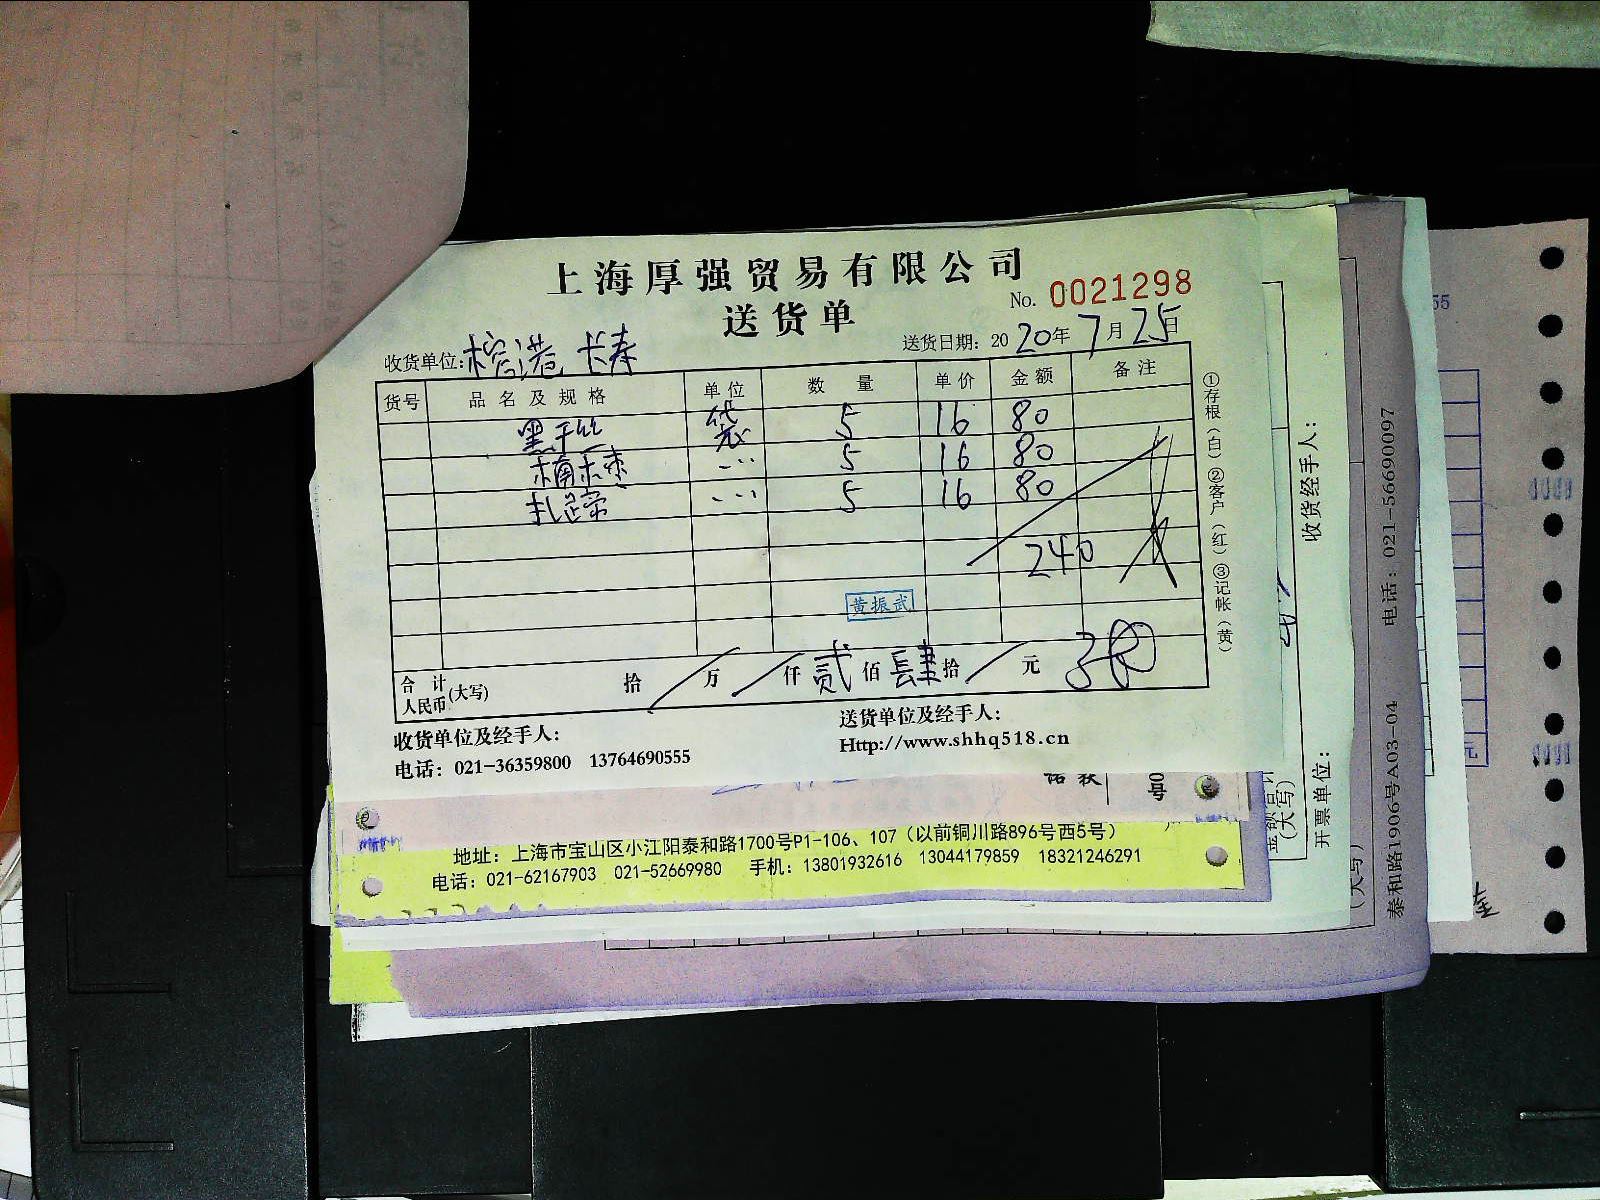 上海厚强贸易有限公司
送货单
No. 0021298
收货单位: 榕港 长寿
送货日期: 2020年7月25日
货号 品名及规格 单位 数量 单价 金额 备注
黑千丝 袋 5 16 80
楠枣 〃 5 16 80
扎蹄 〃 5 16 80
240
黄振武
合计人民币(大写) 拾 万 仟 贰 佰 肆 拾 元
收货单位及经手人:
送货单位及经手人:
电话: 021-36359800 13764690555
Http://www.shhq518.cn
①存根(白) ②客户(红) ③记帐(黄)
地址: 上海市宝山区小江阳泰和路1700号P1-106、107(以前铜川路896号西5号)
电话: 021-62167903 021-52669980 手机: 13801932616 13044179859 18321246291
收货经手人:
开票单位:
(大写)
泰和路1906号A03-04 电话: 021-56690097
55
元